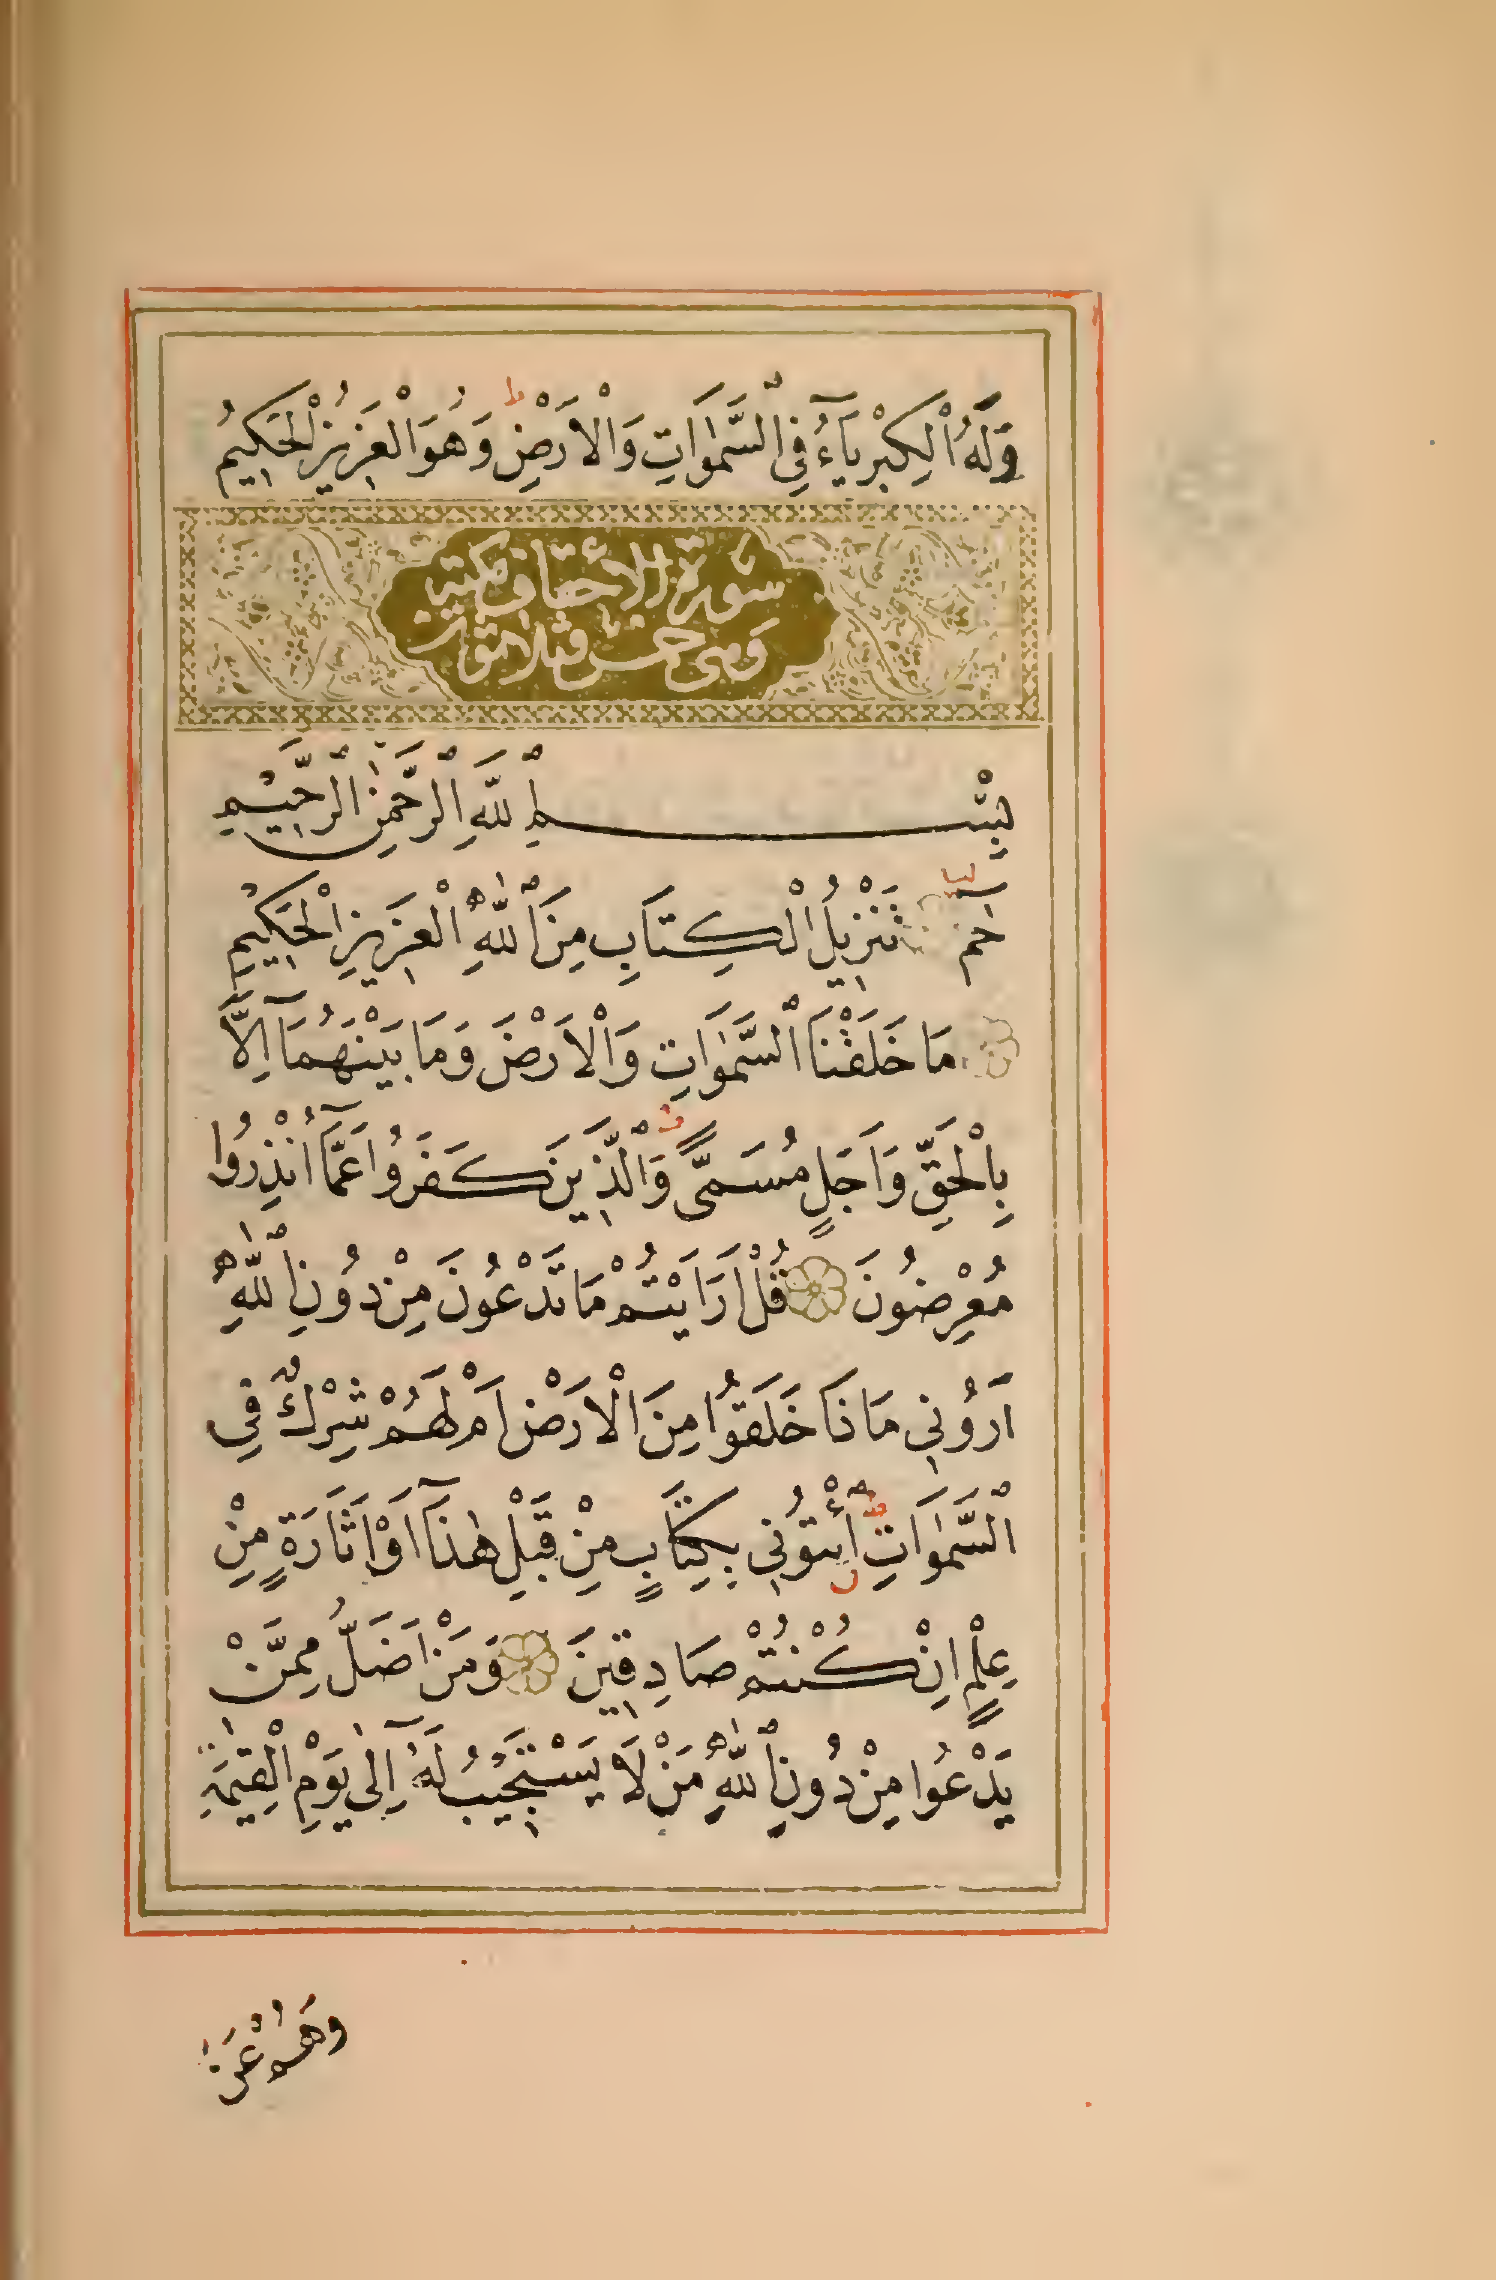 وَلَهُ الْكِبْرِيَآءُ فِي السَّمٰوَاتِ وَالْاَرْضِ ط وَهُوَ الْعَزِيزُ الْحَكِيمُ
سُورَةُ الْاَحْقَافِ مَكِّيَّة
وَهِىَ خَمْسٌ وَثَلَاثُونَ
بِسْمِ اللّٰهِ الرَّحْمٰنِ الرَّحِيْمِ
حٰمٓ تَنْزِيلُ الْكِتَابِ مِنَ اللّٰهِ الْعَزِيزِ الْحَكِيْمِ
مَا خَلَقْنَا السَّمٰوَاتِ وَالْاَرْضَ وَمَا بَيْنَهُمَآ اِلَّا
بِالْحَقِّ وَاَجَلٍ مُسَمًّى ط وَالَّذِينَ كَفَرُوا عَمَّآ اُنْذِرُوا
مُعْرِضُونَ قُلْ اَرَاَيْتُمْ مَا تَدْعُونَ مِنْ دُونِ اللّٰهِ
اَرُونِي مَاذَا خَلَقُوا مِنَ الْاَرْضِ اَمْ لَهُمْ شِرْكٌ فِي
السَّمٰوَاتِ ط اِئْتُونِي بِكِتَابٍ مِنْ قَبْلِ هٰذَآ اَوْ اَثَارَةٍ مِنْ
عِلْمٍ اِنْ كُنْتُمْ صَادِقِينَ وَمَنْ اَضَلُّ مِمَّنْ
يَدْعُوا مِنْ دُونِ اللّٰهِ مَنْ لَا يَسْتَجِيْبُ لَهُ اِلٰى يَوْمِ الْقِيٰمَةِ
وَهُمْ عَنْ